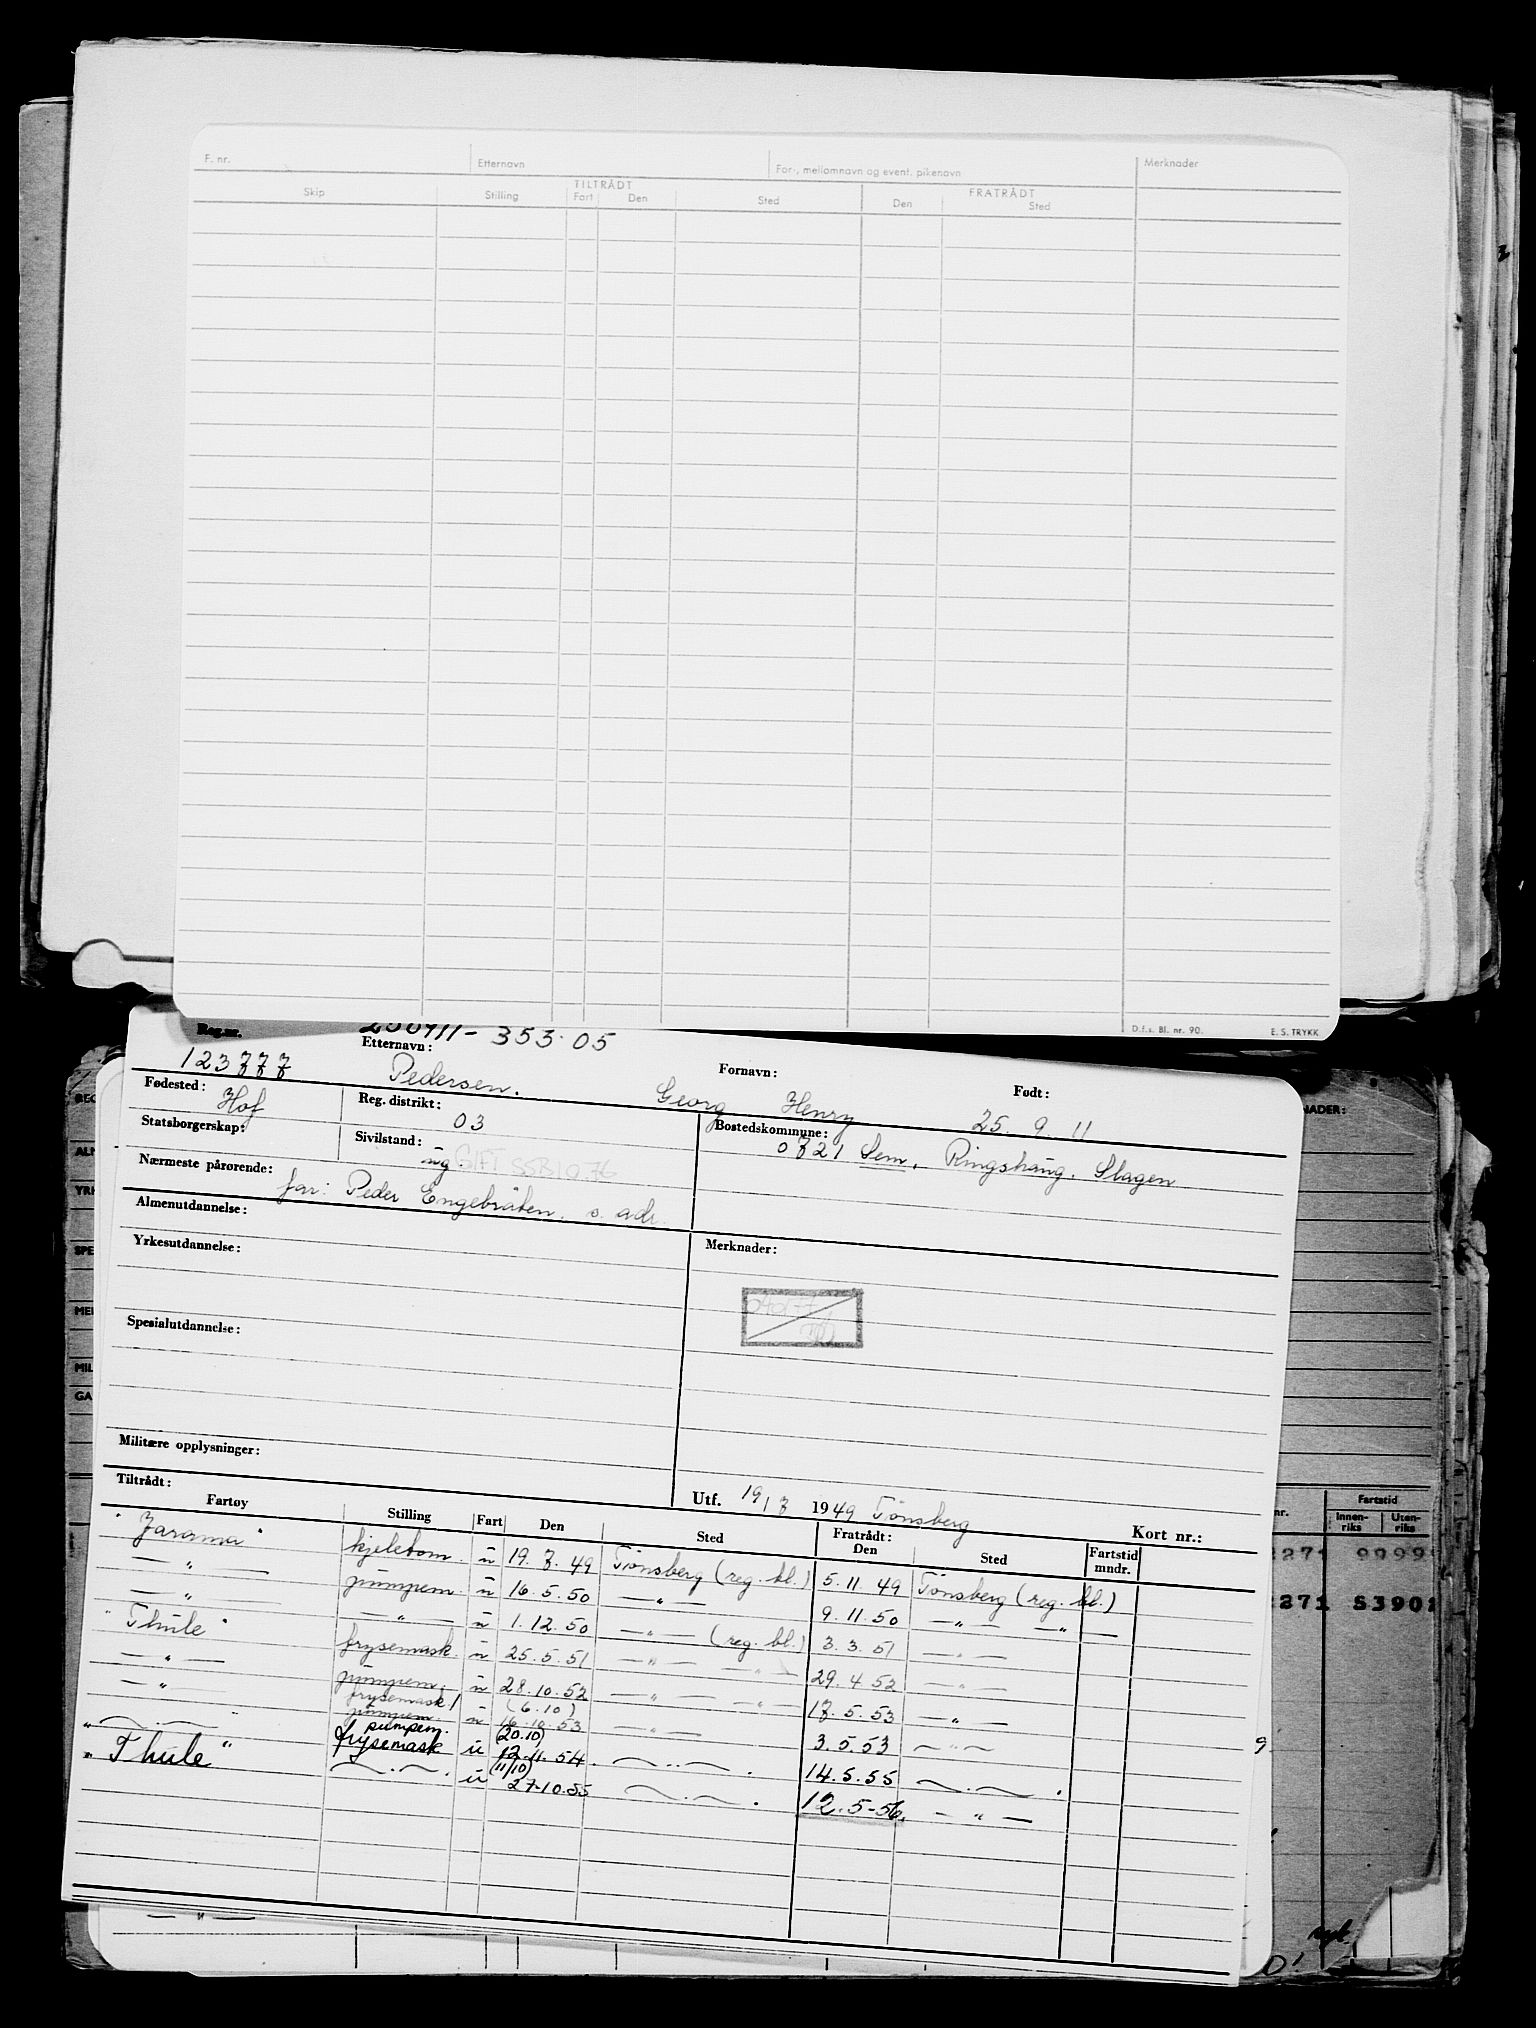 F. nr. Etternavn For-, mellomnavn og event. pikenavn Merknader
TILTRÅDT FRATRÅDT
Skip Stilling Fart Den Sted Den Sted
D.f.s. Bl. nr. 90. E. S. TRYKK
Reg.nr. 250911- 353.05
123777 Etternavn: Pedersen. Fornavn: Georg Henry Født: 25. 9. 11
Fødested: Hof Reg. distrikt: 03 Bostedskommune: 0721 Sem, Ringshaug, Slagen
Statsborgerskap: Sivilstand: ug. GIFT SSB 10.76
Nærmeste pårørende: far: Peder Engebråten, s. adr.
Almenutdannelse:
Yrkesutdannelse: Merknader:
Spesialutdannelse:
Militære opplysninger:
Tiltrådt: Utf. 19/7 1949 Tönsberg Kort nr.:
Fartøy Stilling Fart Den Sted Fratrådt: Den Sted Fartstid mndr.
"Jarama" kjelebom. u 19. 7. 49 Tönsberg (reg. bl.) 5. 11. 49 Tönsberg (reg. bl.)
— " — pumpem. u 16. 5. 50 — " — 9. 11. 50 — " — — " —
— " — — " — u 1. 12. 50 — " — (reg. bl.) 3. 3. 51 — " —
"Thule" frysemask. u 25. 5. 51 — " — — " — 29. 4 52 — " —
— " — pumpem. u 28. 10. 52 — " — — " — 17. 5. 53 — " —
— " — frysemask/ pumpem. u (6. 10) 16. 10. 53 — " — 3. 5. 53 — " —
" — . — pumpem. frysemask u (20. 10) 12. 11. 54 — .. — . 14. 5. 55 — . — .
"Thule" — . — . u (11/10) 27-10.55 — . — . 12. 5-56. — " —
9
nr. Fartstid
Innen-riks Uten-riks
271 9999
271 S390
— " —